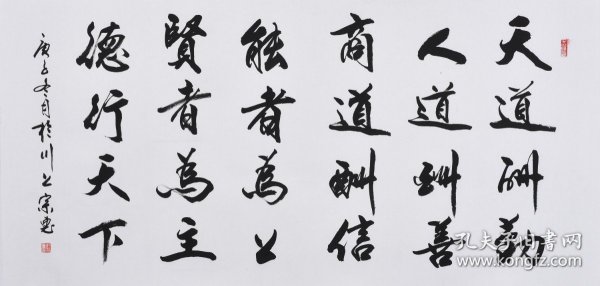 天道酬勤
人道酬善
商道酬信
能者為上
賢者為主
德行天下
庚子冬月於川上宗
孔夫子旧书网
www.kongfz.com